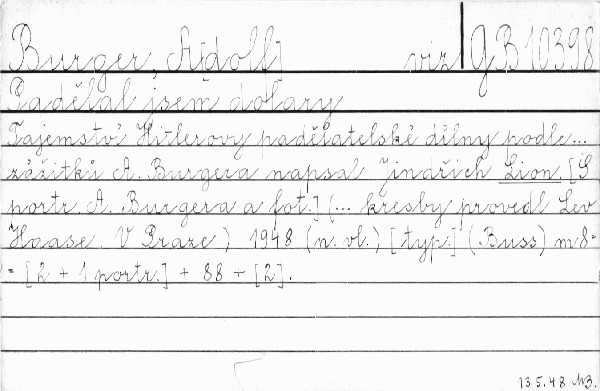 Burger, A[dolf] viz GB 10398
Padělal jsem dolary
Tajemství Hitlerovy padělatelské dílny podle...
zážitků A. Burgera napsal Jindřich Lion. [S
portr. A. Burgera a fot.] (... kresby provedl Lev
Haase. V Praze) 1948 (n. vl.) [typ.] (Buss) m8=
= [2 + 1 portr.] + 88 + [2].
13.5.48